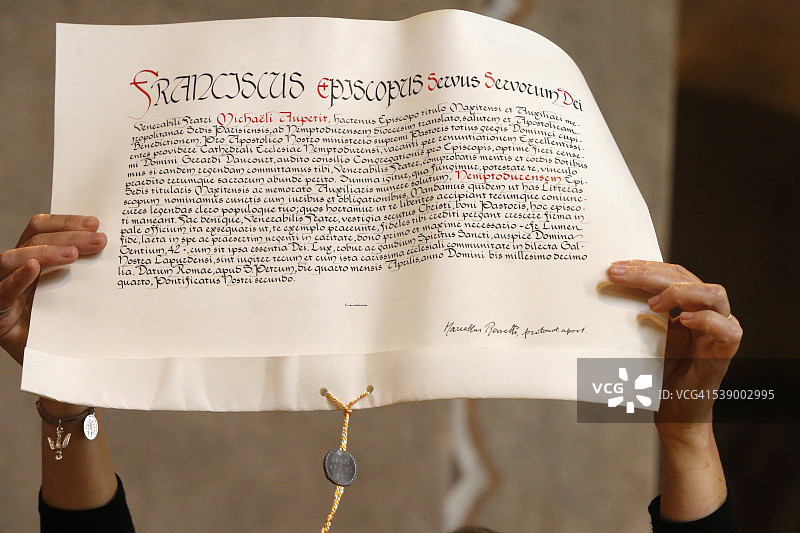 FRANCISCUS EPISCOPUS SERVUS SERVORUM DEI
Venerabili Fratri Michaëli Aupetit, hactenus Episcopo titulo Maxitensi et Auxiliari me-
tropolitanae Sedis Parisiensis, ad Nemptodurensem dioecesim translato, salutem et Apostolicam
Benedictionem. Pro Apostolico Nostro ministerio supremi Pastoris totius gregis Dominici cupi-
entes providere Cathedrali Ecclesiae Nemptodurensi, vacanti per renuntiationem Excellentissi-
mi Domini Gerardi Daucourt, audito consilio Congregationis pro Episcopis, optime fieri cense-
mus si eandem regendam committamus tibi, Venerabilis Frater, comprobatis mentis et cordis dotibus
praedito rerumque sacrarum abunde perito. Summa igitur, qua fungimur, potestate te, vinculo
Sedis titularis Maxitensis ac memorato Auxiliaris munere solutum, Nemptodurensem Epi-
scopum nominamus cunctis cum iuribus et obligationibus. Mandamus quidem ut has Litteras
cures legendas clero populoque tuo; quos hortamur ut te libentes accipiant tecumque coniunc-
ti maneant. Fac denique, Venerabilis Frater, vestigia secutus Christi, boni Pastoris, hoc episco-
pale officium ita exsequaris ut, te exemplo praeeunte, fideles tibi crediti pergant crescere firma in
fide, laeta in spe ac praesertim urgenti in caritate, dono primo et maxime necessario - cfr Lumen
Gentium, 42 -, cum sit ipsa essentia Dei. Lux, robur ac gaudium Spiritus Sancti, auspice Domina
Nostra Lapurdensi, sint iugiter tecum et cum ista carissima ecclesiali communitate in dilecta Gal-
lia. Datum Romae, apud S. Petrum, die quarto mensis Aprilis, anno Domini bis millesimo decimo
quarto, Pontificatus Nostri secundo.
Marcellus Rossetti, protonot. apost.
VCG
ID: VCG41539002995